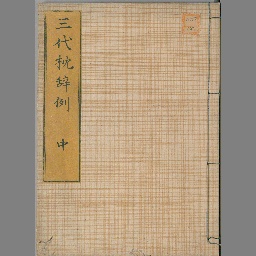 三代枕辞例 中